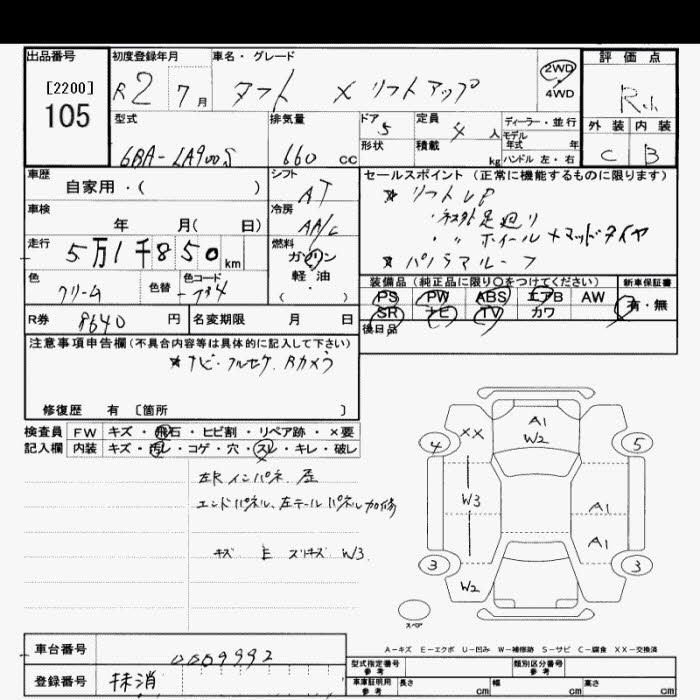 出品番号 初度登録年月 車名・グレード 評価点
[2200]
105
R2 7月 タフト X リフトアップ 2WD
4WD
型式 排気量 ドア 5 定員 4人 ディーラー・並行
6BA-LA900S 660 cc 形状 積載 kg モデル年式 年
ハンドル 左・右
外装 内装
C B
車歴 自家用・( ) シフト AT
セールスポイント(正常に機能するものに限ります)
★ リフトUP
車検 年 月( 日) 冷房 AA/C
・ 〃 ホイール + マッドタイヤ
走行 5万1千850km 燃料 ガソリン
軽油
( )
★ パノラマルーフ
色 クリーム 色替 色コード
装備品(純正品に限り○をつけてください) 新車保証書
PS PW ABS エアB AW 有・無
SR ナビ TV カワ
R券 8640 円 名変期限 月 日 後日品
注意事項申告欄(不具合内容等は具体的に記入して下さい)
★ナビ・フルセグ、Bカメラ
修復歴 有 〔箇所 〕
検査員 FW キズ・飛石・ヒビ割・リペア跡・×要
記入欄 内装 キズ・汚レ・コゲ・穴・スレ・キレ・破レ
エンドパネル、左テールパネル加修
キズ E スリキズ W3
A1
W2
XX
4 5
W3 A1
A1
3 3
W2
スペア
A-キズ E-エクボ U-凹み W-補修跡 S-サビ C-腐食 XX-交換済
車台番号 0009992
登録番号 抹消
型式指定番号 参考 類別区分番号 参考
車庫証明用 参考 長さ cm 幅 cm 高さ cm